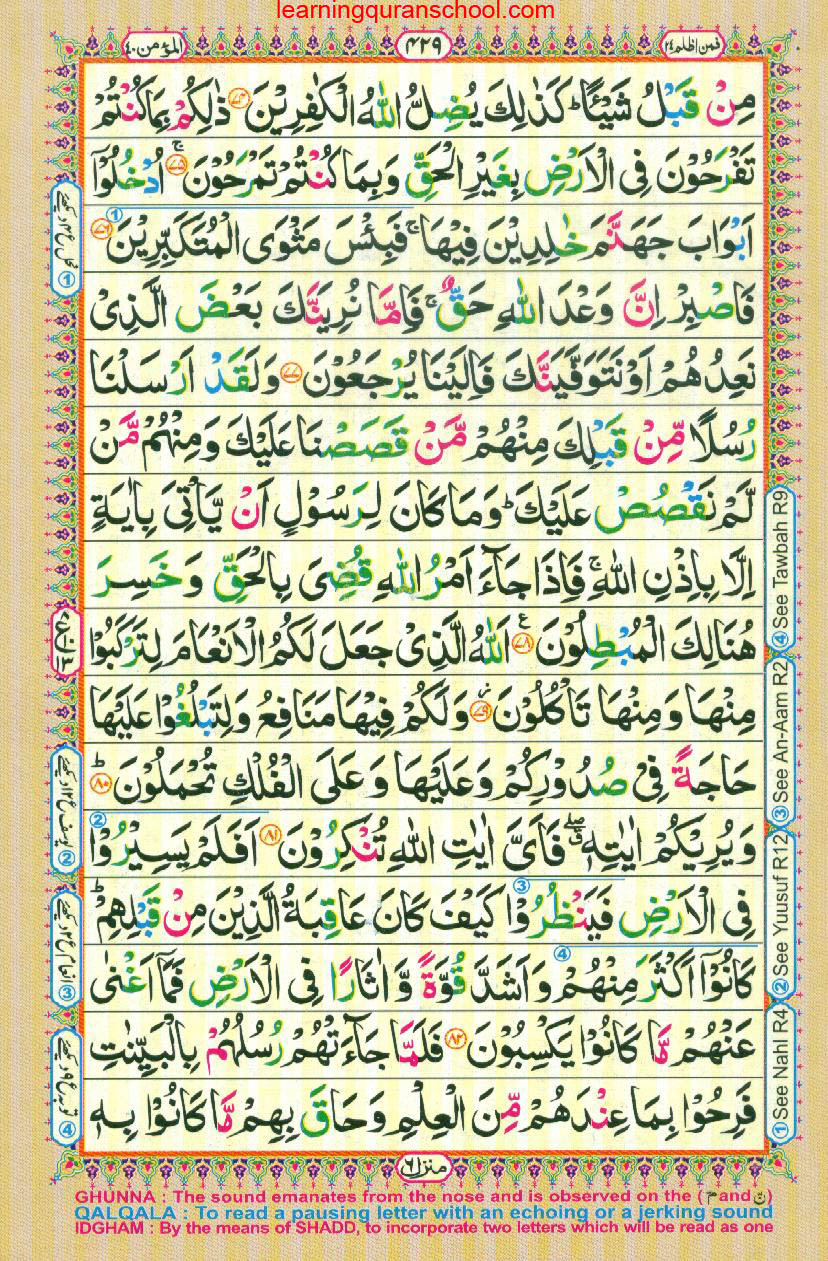 learningquranschool.com
المؤمن ٤٠
٤٢٩
فمن اظلم ٢٤
مِنْ قَبْلُ شَيْـًٔا ؕ كَذٰلِكَ يُضِلُّ اللّٰهُ الْكٰفِرِيْنَ ﴿۷۴﴾ ذٰلِكُمْ بِمَا كُنْتُمْ
تَفْرَحُوْنَ فِى الْاَرْضِ بِغَيْرِ الْحَقِّ وَبِمَا كُنْتُمْ تَمْرَحُوْنَ ﴿۷۵﴾ۚ اُدْخُلُوْۤا
اَبْوَابَ جَهَنَّمَ خٰلِدِيْنَ فِيْهَا ۚ فَبِئْسَ مَثْوَى الْمُتَكَبِّرِيْنَ ﴿۷۶﴾
فَاصْبِرْ اِنَّ وَعْدَ اللّٰهِ حَقٌّ ۚ فَاِمَّا نُرِيَنَّكَ بَعْضَ الَّذِىْ
نَعِدُهُمْ اَوْ نَتَوَفَّيَنَّكَ فَاِلَيْنَا يُرْجَعُوْنَ ﴿۷۷﴾ وَلَقَدْ اَرْسَلْنَا
رُسُلًا مِّنْ قَبْلِكَ مِنْهُمْ مَّنْ قَصَصْنَا عَلَيْكَ وَمِنْهُمْ مَّنْ
لَّمْ نَقْصُصْ عَلَيْكَ ؕ وَمَا كَانَ لِرَسُوْلٍ اَنْ يَّاْتِىَ بِاٰيَةٍ
اِلَّا بِاِذْنِ اللّٰهِ ۚ فَاِذَا جَآءَ اَمْرُ اللّٰهِ قُضِىَ بِالْحَقِّ وَخَسِرَ
هُنَالِكَ الْمُبْطِلُوْنَ ﴿۷۸﴾ اَللّٰهُ الَّذِىْ جَعَلَ لَكُمُ الْاَنْعَامَ لِتَرْكَبُوْا
مِنْهَا وَمِنْهَا تَاْكُلُوْنَ ﴿۷۹﴾ وَلَكُمْ فِيْهَا مَنَافِعُ وَلِتَبْلُغُوْا عَلَيْهَا
حَاجَةً فِىْ صُدُوْرِكُمْ وَعَلَيْهَا وَعَلَى الْفُلْكِ تُحْمَلُوْنَ ﴿۸۰﴾ؕ
وَيُرِيْكُمْ اٰيٰتِهٖ ۖۗ فَاَىَّ اٰيٰتِ اللّٰهِ تُنْكِرُوْنَ ﴿۸۱﴾ اَفَلَمْ يَسِيْرُوْا
فِى الْاَرْضِ فَيَنْظُرُوْا كَيْفَ كَانَ عَاقِبَةُ الَّذِيْنَ مِنْ قَبْلِهِمْ ؕ
كَانُوْۤا اَكْثَرَ مِنْهُمْ وَاَشَدَّ قُوَّةً وَّاٰثَارًا فِى الْاَرْضِ فَمَاۤ اَغْنٰى
عَنْهُمْ مَّا كَانُوْا يَكْسِبُوْنَ ﴿۸۲﴾ فَلَمَّا جَآءَتْهُمْ رُسُلُهُمْ بِالْبَيِّنٰتِ
فَرِحُوْا بِمَا عِنْدَهُمْ مِّنَ الْعِلْمِ وَحَاقَ بِهِمْ مَّا كَانُوْا بِهٖ
① See Nahl R4
② See Yuusuf R12
③ See An-Aam R2
④ See Tawbah R9
منزل ٦
GHUNNA : The sound emanates from the nose and is observed on the ( مّ and نّ )
QALQALA : To read a pausing letter with an echoing or a jerking sound
IDGHAM : By the means of SHADD, to incorporate two letters which will be read as one